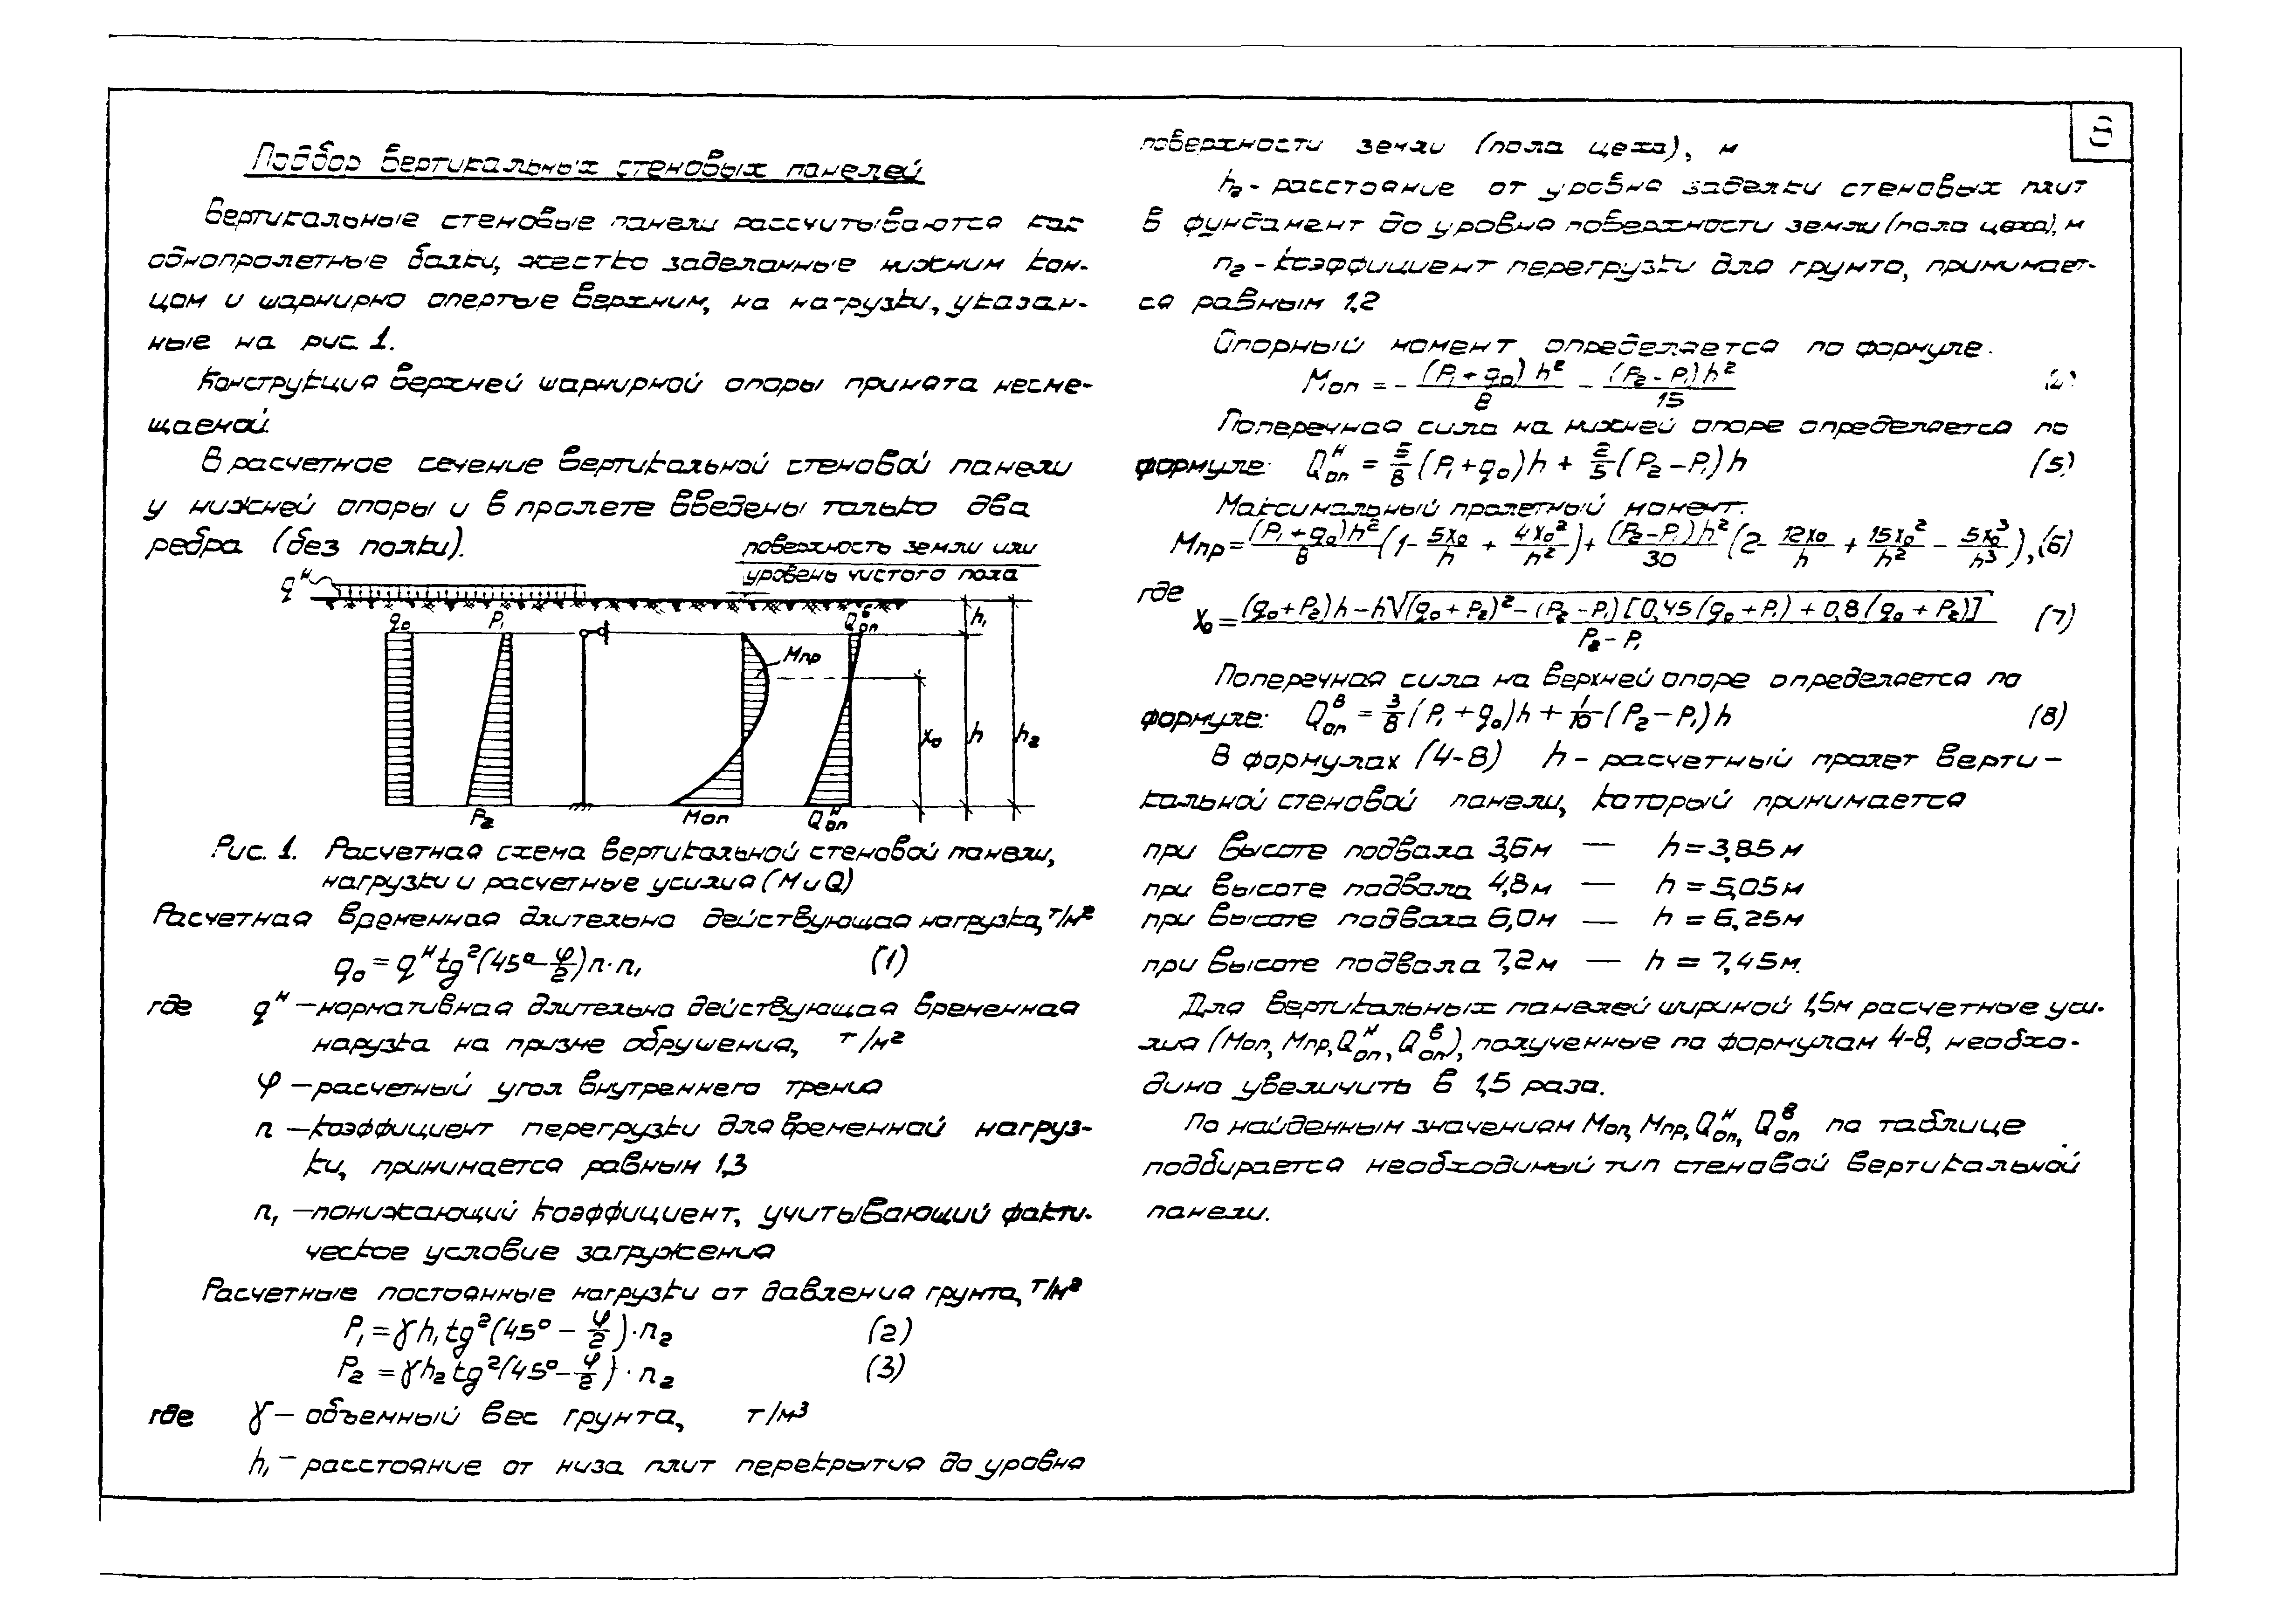 Подбор вертикальных стеновых панелей
Вертикальные стеновые панели рассчитываются как
однопролетные балки, жестко заделанные нижним кон-
цом и шарнирно опертые верхним, на нагрузки, указан-
ные на рис. 1.
Конструкция верхней шарнирной опоры принята несме-
щаемой.
В расчетное сечение вертикальной стеновой панели
у нижней опоры и в пролете введены только два
ребра (без полки).
поверхность земли или
уровень чистого пола
qᴴ
q₀ P₁ Qᴮоп h₁
Mпр
x₀ h h₂
P₂ Mоп Qᴴоп
Рис. 1. Расчетная схема вертикальной стеновой панели,
нагрузки и расчетные усилия (M и Q)
Расчетная временная длительно действующая нагрузка, т/м²
q₀ = qᴴ tg²(45° – φ/2) n · n₁ (1)
где qᴴ – нормативная длительно действующая временная
нарузка на призме обрушения, т/м²
φ – расчетный угол внутреннего трения
n – коэффициент перегрузки для временной нагруз-
ки, принимается равным 1,3
n₁ – понижающий коэффициент, учитывающий факти-
ческое условие загружения
Расчетные постоянные нагрузки от давления грунта, т/м²
P₁ = γ h₁ tg²(45° – φ/2) · n₂ (2)
P₂ = γ h₂ tg²(45° – φ/2) · n₂ (3)
где γ – объемный вес грунта, т/м³
h₁ – расстояние от низа плит перекрытия до уровня
8
поверхности земли (пола цеха), м
h₂ – расстояние от уровня заделки стеновых плит
в фундамент до уровня поверхности земли (пола цеха), м
n₂ – коэффициент перегрузки для грунта, принимает-
ся равным 1,2
Опорный момент определяется по формуле.
Mоп = – (P₁ + q₀) h²/8 – (P₂ – P₁) h²/15
Поперечная сила на нижней опоре определяется по
формуле: Qᴴоп = 5/8 (P₁ + q₀) h + 2/5 (P₂ – P₁) h (5)
Максимальный пролетный момент:
Mпр = (P₁ + q₀) h²/8 (1 – 5x₀/h + 4x₀²/h²) + (P₂ – P₁) h²/30 (2 – 12x₀/h + 15x₀²/h² – 5x₀³/h³), (6)
где
x₀ = ((q₀ + P₂) h – h√((q₀ + P₂)² – (P₂ – P₁) [0,45 (q₀ + P₁) + 0,8 (q₀ + P₂)]))/(P₂ – P₁) (7)
Поперечная сила на верхней опоре определяется по
формуле: Qᴮоп = 3/8 (P₁ + q₀) h + 1/10 (P₂ – P₁) h (8)
В формулах (4-8) h – расчетный пролет верти-
кальной стеновой панели, который принимается
при высоте подвала 3,6м — h = 3,85 м
при высоте подвала 4,8м — h = 5,05м
при высоте подвала 6,0м — h = 6,25м
при высоте подвала 7,2м — h = 7,45м.
Для вертикальных панелей шириной 1,5м расчетные уси-
лия (Mоп, Mпр, Qᴴоп, Qᴮоп), полученные по формулам 4-8, необхо-
димо увеличить в 1,5 раза.
По найденным значениям Mоп, Mпр, Qᴴоп, Qᴮоп по таблице
подбирается необходимый тип стеновой вертикальной
панели.